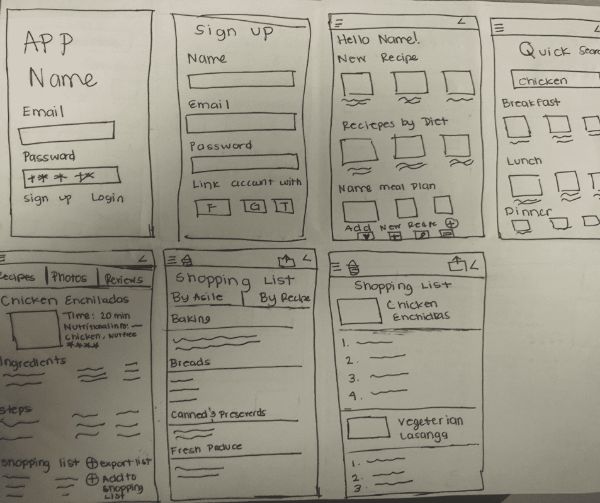 APP
Name
Email
Password
Sign up Login
Sign up
Name
Email
Password
Link account with
F G T
Hello Name!
New Recipe
Reciepes by Diet
Name meal Plan
Add New
Quick Sear
Chicken
Breakfast
Lunch
Dinner
ecipes Photos Reviews
Chicken Enchiladas
Time: 20 min
Nutritional info:
Chicken,
Ingredients
Steps
Shopping list export list
Add to
shopping
list
Shopping List
By Asile By Recipe
Baking
Breads
Canned's Preseverds
Fresh Produce
Shopping List
Chicken
Enchidlas
1.
2.
3.
4.
Vegeterian
Lasanga
1.
2.
3.